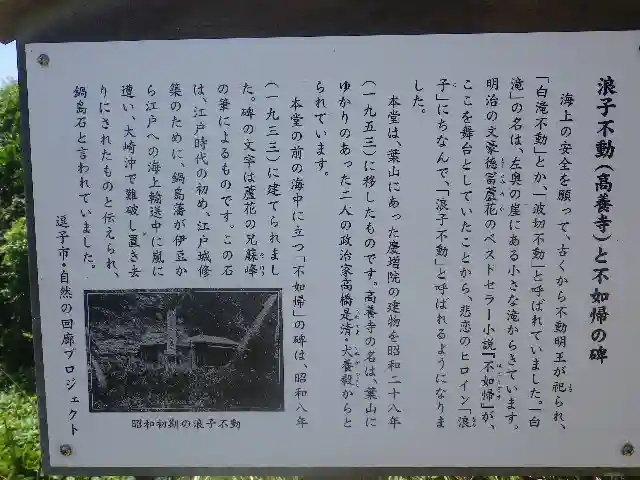 浪子不動(高養寺)と不如帰の碑
海上の安全を願って、古くから不動明王が祀られ、
「白滝不動」とか、「波切不動」と呼ばれていました。「白
滝」の名は、左奥の崖にある小さな滝からきています。
明治の文豪徳冨蘆花のベストセラー小説『不如帰』が、
ここを舞台としていたことから、悲恋のヒロイン「浪
子」にちなんで、「浪子不動」と呼ばれるようになりま
した。
本堂は、葉山にあった慶増院の建物を昭和二十八年
(一九五三)に移したものです。高養寺の名は、葉山に
ゆかりのあった二人の政治家高橋是清・犬養毅からと
られています。
本堂の前の海中に立つ「不如帰」の碑は、昭和八年
(一九三三)に建てられまし
た。碑の文字は蘆花の兄蘇峰
の筆によるものです。この石
は、江戸時代の初め、江戸城修
築のために、鍋島藩が伊豆か
ら江戸への海上輸送中に嵐に
遭い、大崎沖で難破し置き去
りにされたものと伝えられ、
鍋島石と言われていました。
逗子市・自然の回廊プロジェクト
昭和初期の浪子不動